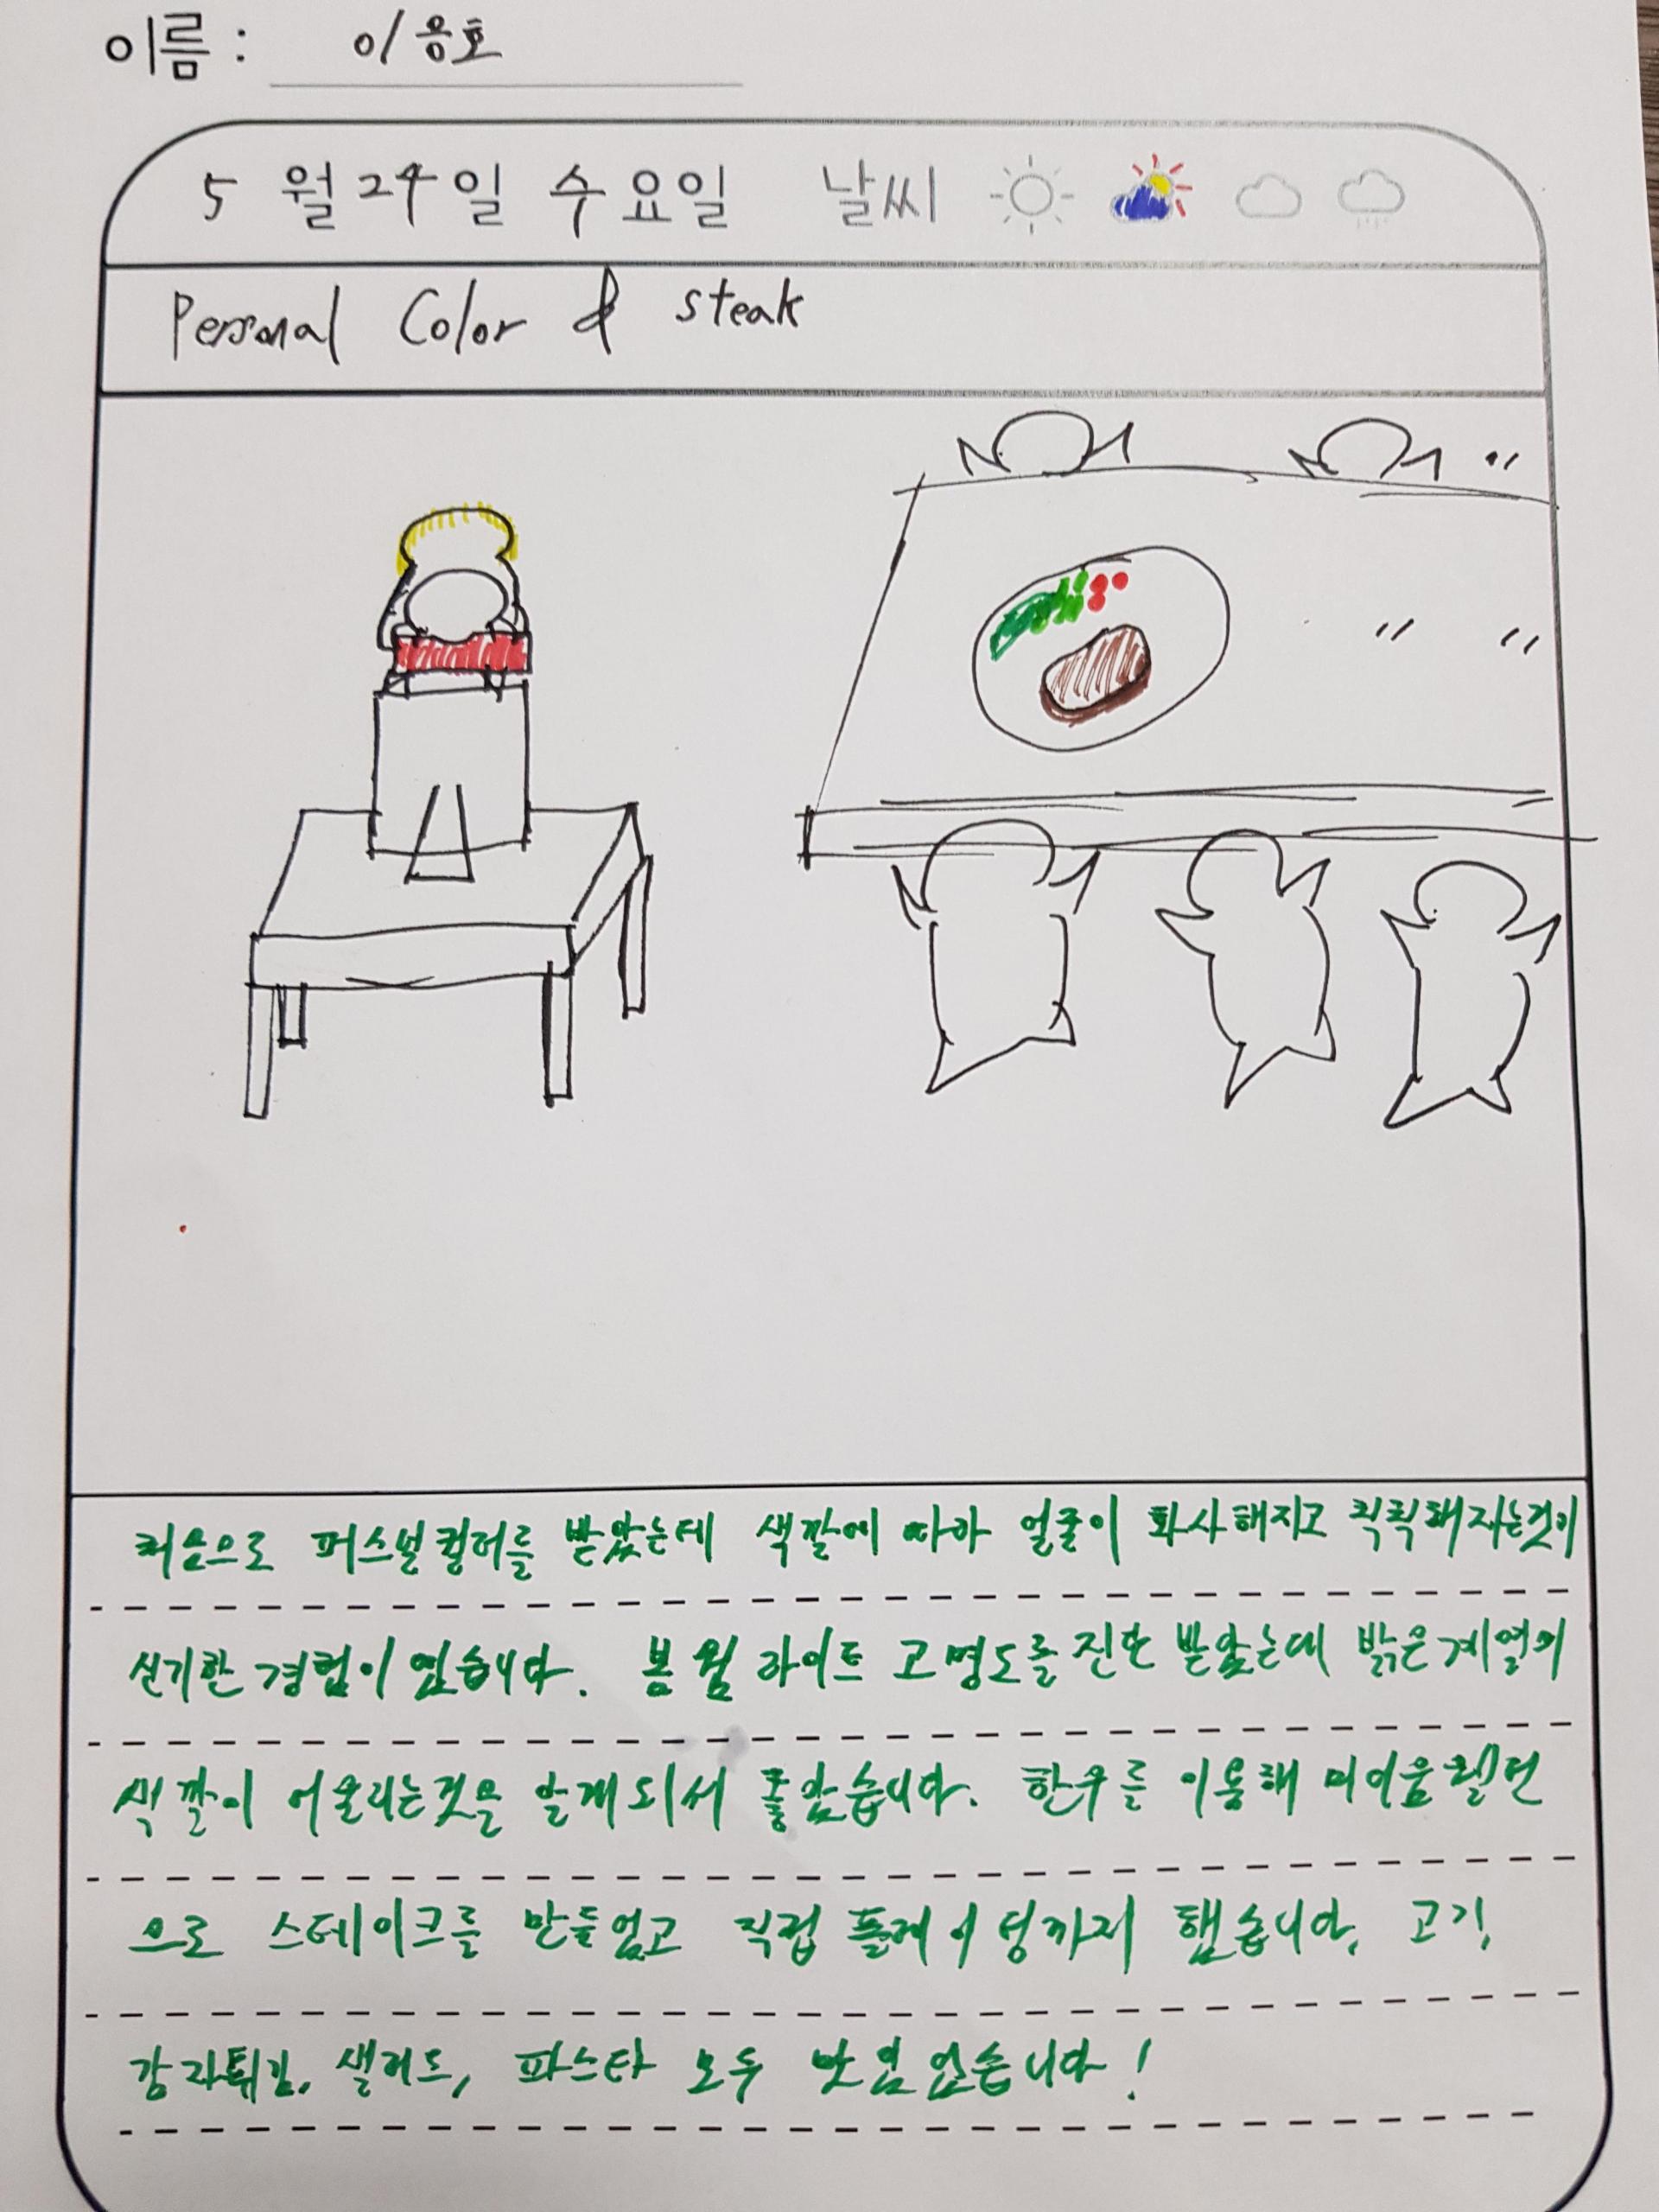 이름 : 이응호
5 월 24 일 수 요일 날씨
Personal Color & steak
처음으로 퍼스널컬러를 받았는데 색깔에 따라 얼굴이 화사해지고 칙칙해지는것이
신기한 경험이 였습니다. 봄 웜 라이트 고명도를 진단 받았는데 밝은 계열의
색깔이 어울리는것을 알게되서 좋았습니다. 한우를 이용해 미디움웰던
으로 스테이크를 만들었고 직접 플레이팅까지 했습니다. 고기,
감자튀김, 샐러드, 파스타 모두 맛있었습니다!